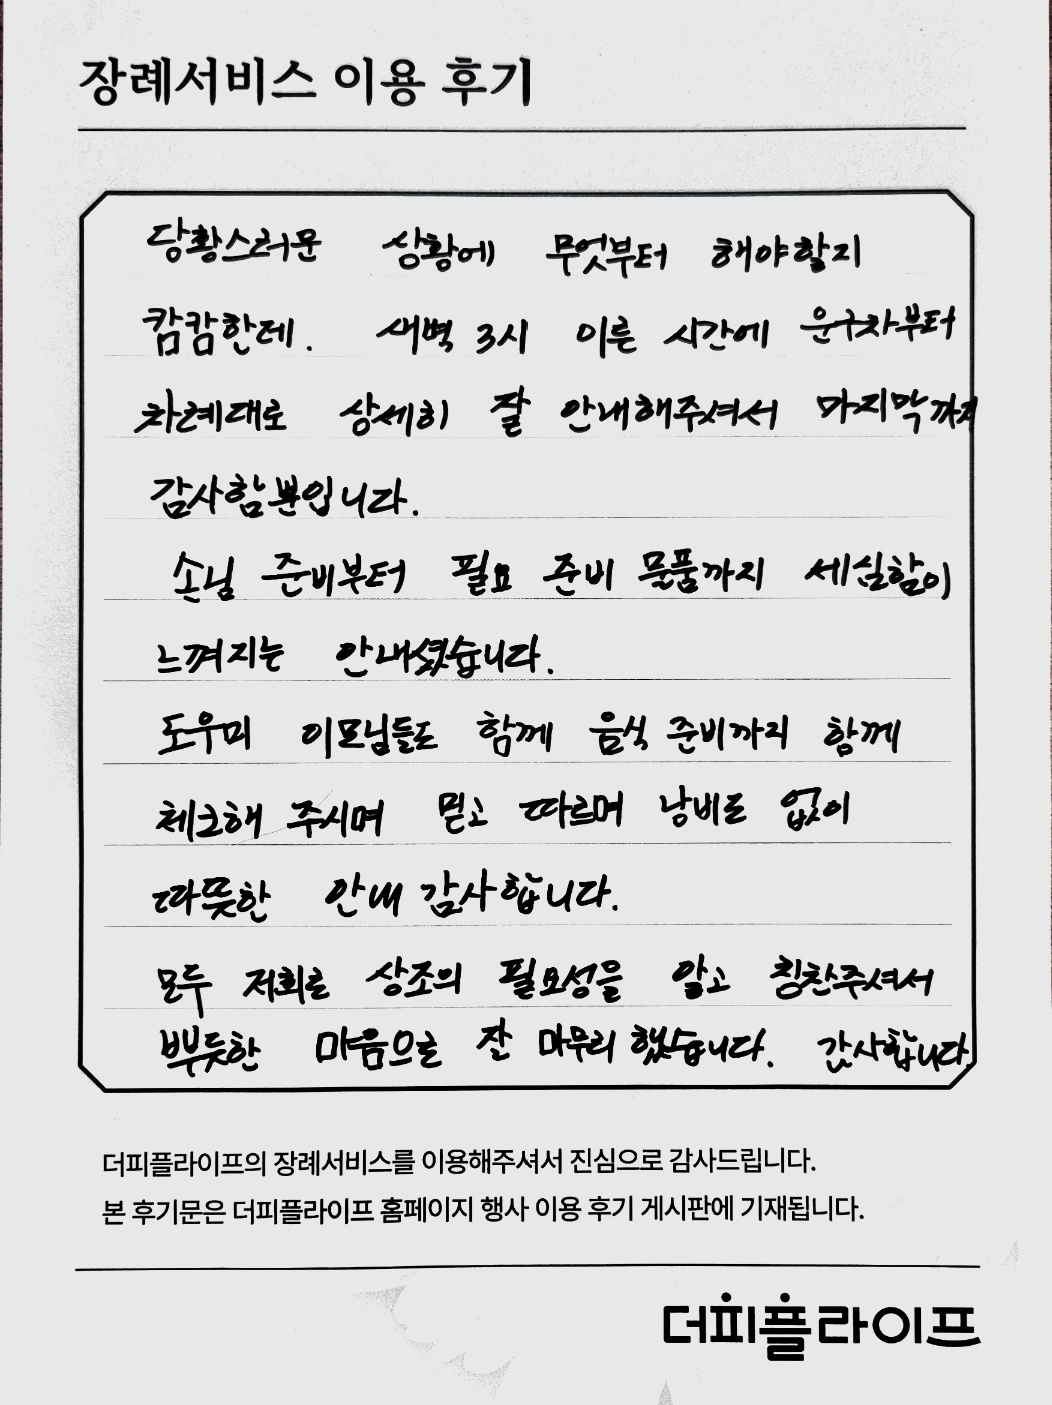 장례서비스 이용 후기
당황스러운 상황에 무엇부터 해야할지
캄캄한데. 새벽 3시 이른 시간에 운구차부터
차례대로 상세히 잘 안내해주셔서 마지막까지
감사함뿐입니다.
손님 준비부터 필요 준비 물품까지 세심함이
느껴지는 안내셨습니다.
도우미 이모님들도 함께 음식 준비까지 함께
체크해 주시며 믿고 따르며 낭비도 없이
따뜻한 안내 감사합니다.
모두 저희로 상조의 필요성을 알고 칭찬주셔서
뿌듯한 마음으로 잘 마무리 했습니다. 감사합니다.
더피플라이프의 장례서비스를 이용해주셔서 진심으로 감사드립니다.
본 후기문은 더피플라이프 홈페이지 행사 이용 후기 게시판에 기재됩니다.
더피플라이프